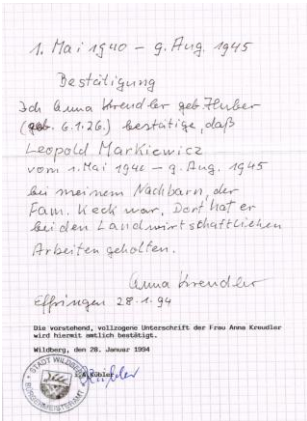 1. Mai 1940 – 9. Aug. 1945
Bestätigung
Ich Anna Kreudler geb. Huber
(geb. 6.1.26.) bestätige, daß
Leopold Markiewicz
vom 1. Mai 1940 – 9. Aug. 1945
bei meinem Nachbarn, der
Fam. Keck war, Dort hat er
bei den Landwirtschaftlichen
Arbeiten geholfen.
Anna Kreudler
Effringen 28.1.94
Die vorstehend, vollzogene Unterschrift der Frau Anna Kreudler
wird hiermit amtlich bestätigt.
Wildberg, den 28. Januar 1994
STADT WILDBERG
BÜRGERMEISTERAMT